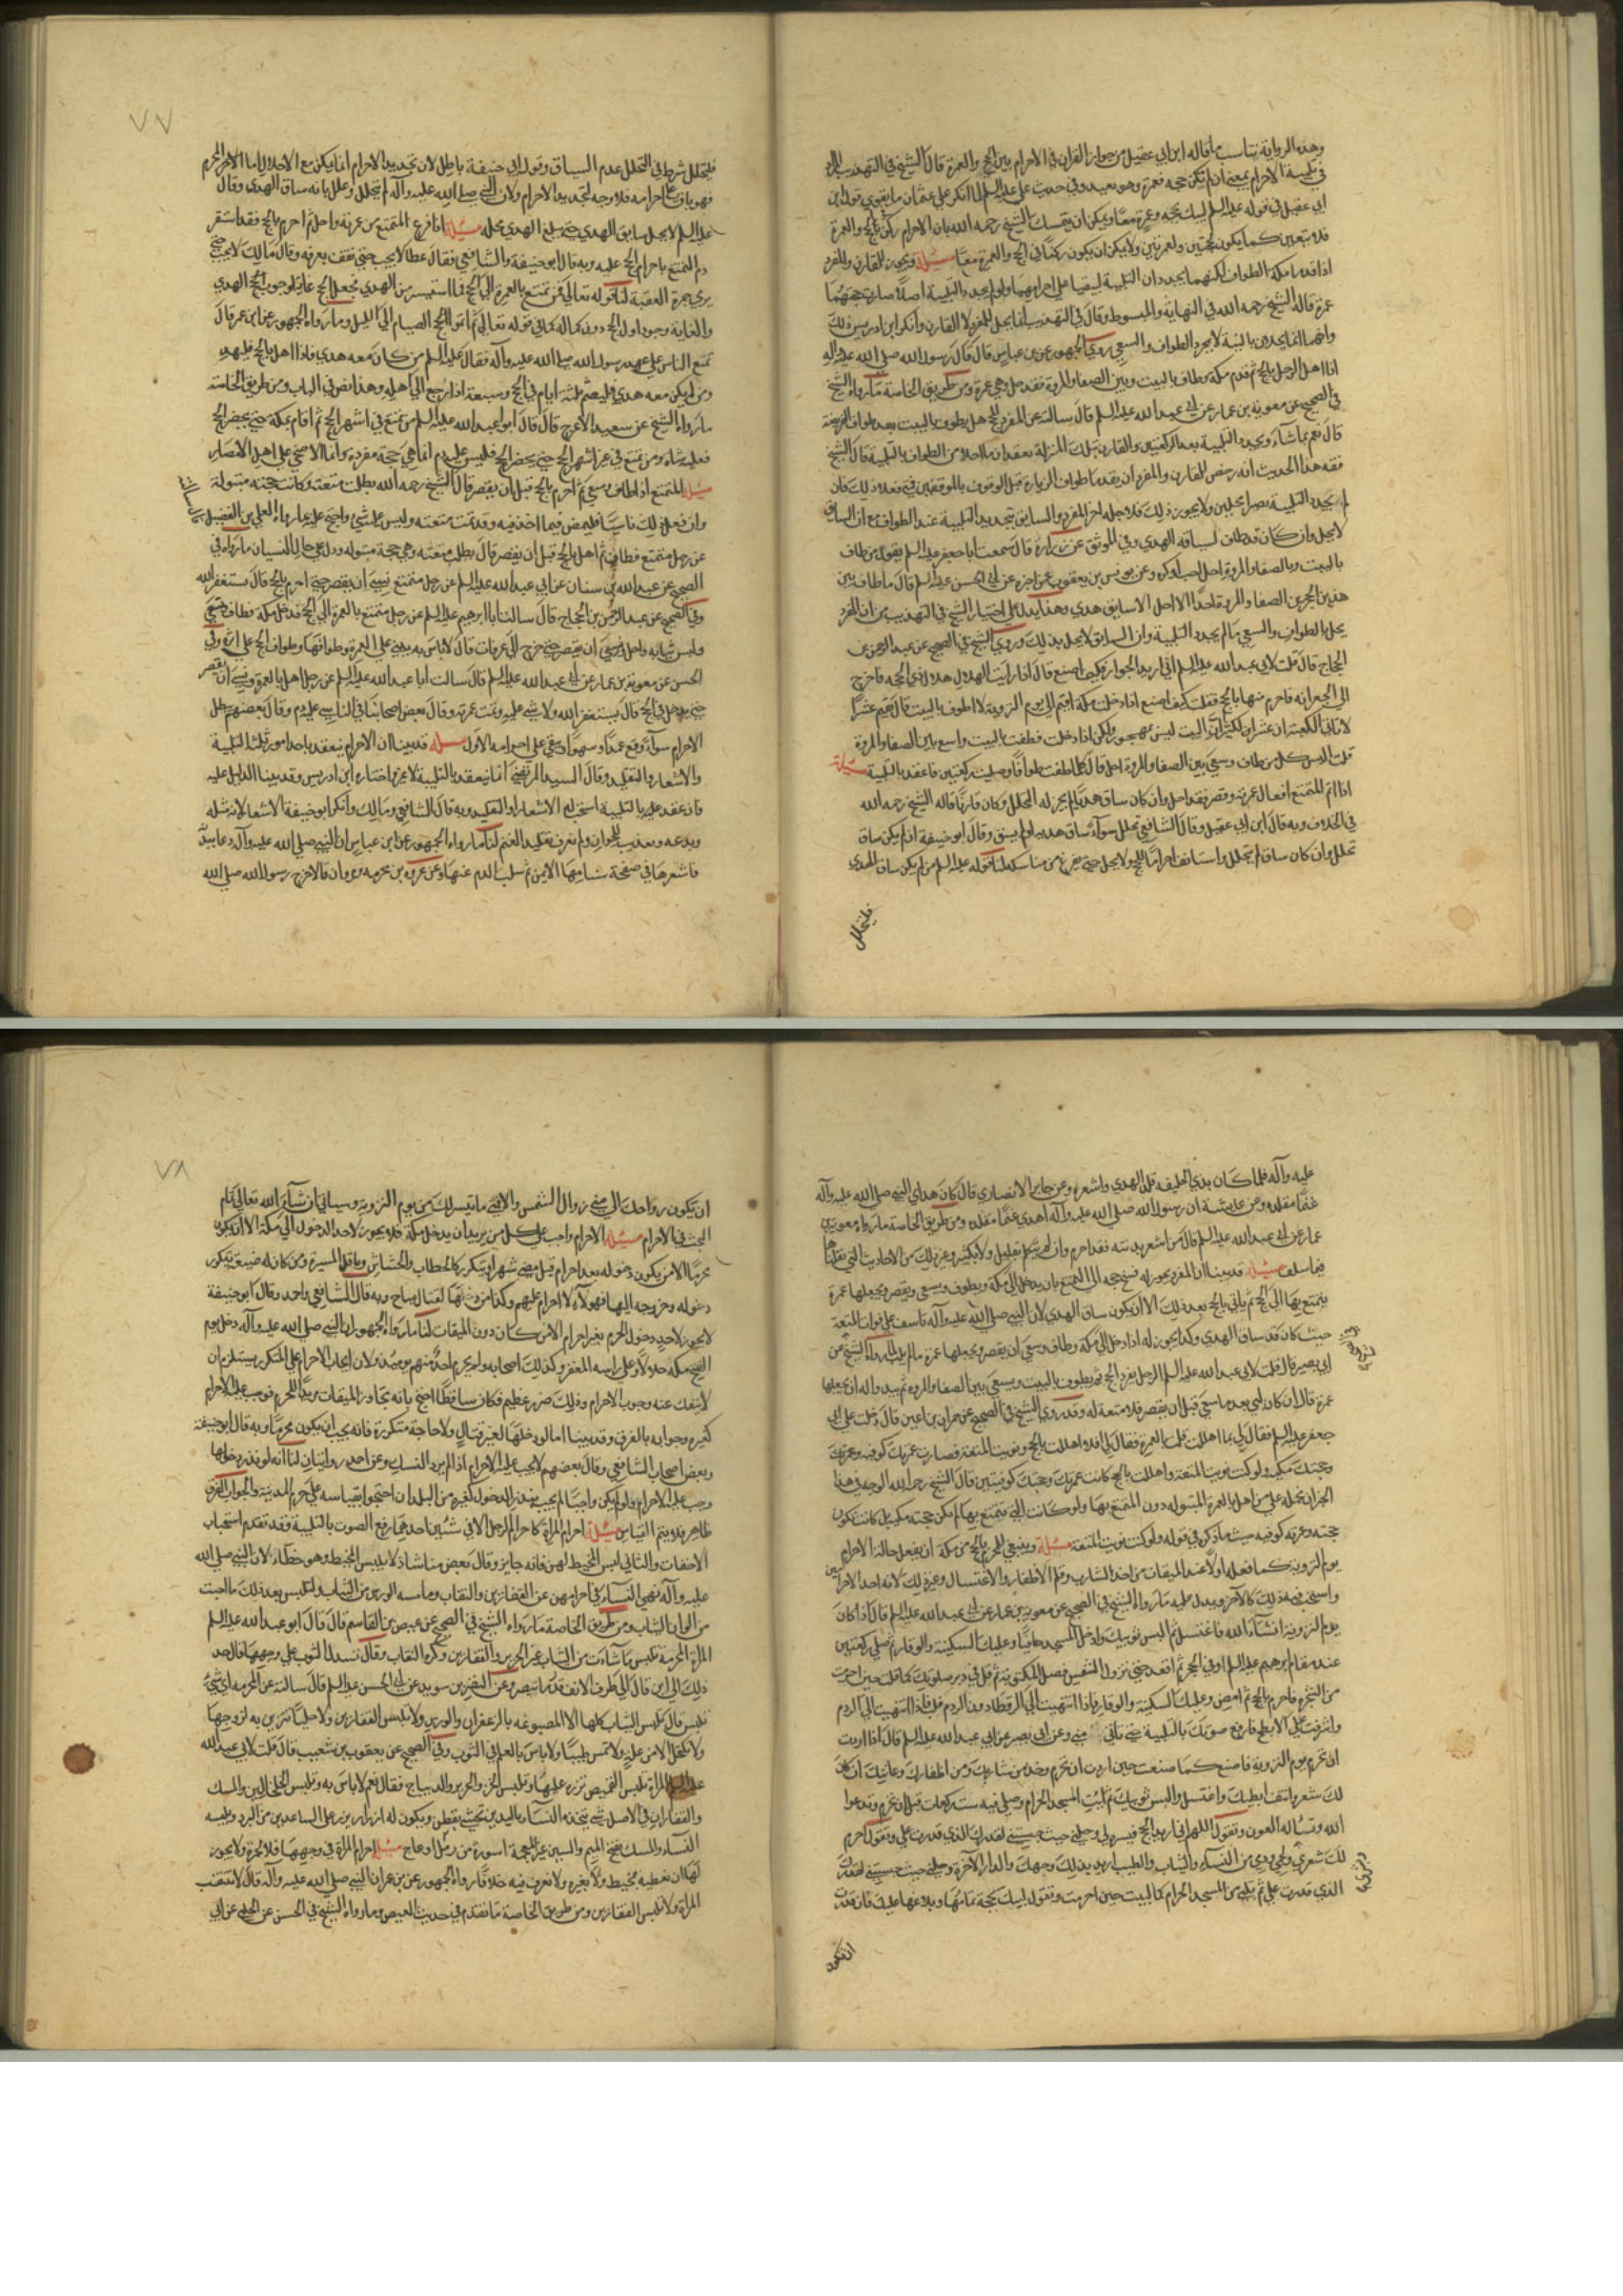 وهذه الرواية تناسب ما قاله ابن ابي عقيل من جواز القران في الاحرام بين الحج والعمرة قال الشيخ في التهذيب المراد
في تلبية الاحرام بمعنى ان لم تكن حجه فعمرة وهو بعيد وفي حديث علي عليه السلم لما انكر علي عثمان ما يقوي قول ابن
ابي عقيل في قوله عليه السلم لبيك بحجة وعمرة معا ويمكن ان يتمسك الشيخ رحمه الله بان الاحرام ركن في الحج والعمرة
فلا يتعين كما لا يكون لحجتين ولعمرتين ولا يمكن ان يكون ركنا في الحج والعمرة معا مسئلة ويجوز للقارن والمفرد
اذا قدما مكة الطواف لكنهما يجددان التلبية ليبقيا علي احرامهما ولو لم يجددا التلبية اصلا صارت حجتهما
عمرة قاله الشيخ رحمه الله في النهاية والمبسوط وقال في التهذيب انما يحل المفرد لا القارن وانكر ابن ادريس ذلك
وانهما انما يحلان بالنية لا بمجرد الطواف والسعي روي الجمهور عن بن عباس قال قال رسول الله صلى الله عليه وآله
اذا اهل الرجل بالحج ثم قدم مكة وطاف بالبيت وبين الصفا والمروة فقد حل وهي عمرة ومن طريق الخاصة ما رواه الشيخ
في الصحيح عن معوية بن عمار عن ابي عبد الله عليه السلم قال سالته عن المفرد للحج هل يطوف بالبيت بعد طواف الفريضة
قال نعم ما شآء ويجدد التلبية بعد الركعتين والقارن بتلك المنزلة يعقدان ما احلا من الطواف بالتلبية قال الشيخ
فقه هذا الحديث انه رخص للقارن والمفرد ان يقدما طواف الزيارة قبل الوقوف بالموقفين فمتي فعلا ذلك فان
لم يجددا التلبية يصيرا محلين ولا يجوز ذلك فلاجله امر المفرد والسابق بتجديد التلبية عند الطواف مع ان السابق
لا يحل وان كان قد طاف لسياقه الهدي وفي الموثق عن زرارة قال سمعت ابا جعفر عليه السلم يقول من طاف
بالبيت وبالصفا والمروة احل احب او كره وعن يونس بن يعقوب عمن اخبره عن ابي الحسن عليه السلم قال ما طاف بين
هذين الحجرين الصفا والمروة احد الا احل الا سابق هدي وهذا يدل علي اختيار الشيخ في التهذيب من ان المفرد
يحل بالطواف والسعي ما لم يجدد التلبية وان السابق لا يحل بذلك وروي الشيخ في الصحيح عن عبد الرحمن بن
الحجاج قال قلت لابي عبد الله عليه السلم اني اريد الجوار فكيف اصنع قال اذا رايت الهلال هلال ذي الحجه فاخرج
الي الجعرانه فاحرم منها بالحج فقلت كيف اصنع اذا دخلت مكة اقيم الي يوم التروية لا اطوف بالبيت قال تقيم عشرا
لا تاتي الكعبة ان عشرا لكثير ان البيت ليس بمهجور ولكن اذا دخلت فطف بالبيت واسع بين الصفا والمروة
قلت اليس كل من طاف وسعي بين الصفا والمروة احل قال كلما طفت طوافا وصليت ركعتين فاعقد بالتلبية مسئلة
اذا اتم المتمتع افعال عمرته وقصر فقد احل وان كان ساق هديا لم يجز له التحلل وكان قارنا قاله الشيخ رحمه الله
في الخلاف وبه قال ابن ابي عقيل وقال الشافعي تحلل سوآء ساق هديه او لم يسق وقال ابو حنيفة ان لم يكن ساق
تحلل وان كان ساق لم يتحلل واستانف احراما للحج ولا يحل حتي يفرغ من مناسكه لنا قوله عليه السلم من لم يكن ساق الهدي
فليتحلل
٧٧
فليتحلل شرط في التحلل عدم السياق وقول ابي حنيفة باطل لان تجديد الاحرام انما يكون مع الاحلال اما الاحرام المحرم
فهو باق علي احرامه فلا وجه لتجديد الاحرام ولان النبي صلى الله عليه وآله لم يتحلل وعلل بانه ساق الهدي وقال
عليه السلم لا يحل سابق الهدي حتي يبلغ الهدي محله مسئلة اذا فرغ المتمتع من عمرته واحل ثم احرم بالحج فقد استقر
دم التمتع باحرام الحج عليه وبه قال ابو حنيفة والشافعي فقال عطا لا يجب حتي يقف بعرفه وقال مالك لا يجب حتي
يرمي جمرة العقبة لنا قوله تعالي فمن تمتع بالعمرة الي الحج فما استيسر من الهدي فجعل الحج غاية لوجوب الهدي
والغاية وجود اول الحج دون كماله كما في قوله تعالي ثم اتموا الصيام الي الليل وما رواه الجمهور عن ابن عمر قال
تمتع الناس علي عهد رسول الله صلى الله عليه وآله فقال عليه السلم من كان معه هدي فاذا اهل بالحج فليهد
ومن لم يكن معه هدي فليصم ثلثة ايام في الحج وسبعة اذا رجع الي اهله وهذا نص في الباب ومن طريق الخاصة
ما رواه الشيخ عن سعيد الاعرج قال قال ابو عبد الله عليه السلم من تمتع في اشهر الحج ثم اقام بمكة حتي يحضر الحج
فعليه شاة ومن تمتع في غير اشهر الحج حتي يحضر الحج فليس عليه دم انما هي حجة مفردة وانما الاضحي علي اهل الامصار
مسئلة المتمتع اذا طاف وسعي ثم احرم بالحج قبل ان يقصر قال الشيخ رحمه الله بطلت متعته وكانت حجته مبتولة
وان فعل ذلك ناسيا فليمض فيما اخذ فيه وقد تمت متعته وليس عليه شيء واحتج عليه بما رواه العلي بن الفضيل
عن رجل متمتع فطاف ثم اهل بالحج قبل ان يقصر قال بطلت متعته وهي حجة مبتوله ودل علي حال النسيان ما رواه في
الصحيح عن عبد الله بن سنان عن ابي عبد الله عليه السلم عن رجل متمتع نسي ان يقصر حتي احرم بالحج قال يستغفر الله
وفي الصحيح عن عبد الرحمن بن الحجاج قال سالت ابا ابرهيم عليه السلم عن رجل متمتع بالعمرة الي الحج فدخل مكة فطاف وسعي
ولبس ثيابه واحل ونسي ان يقصر حتي خرج الي عرفات قال لا باس به يبني علي العمرة وطوافها وطواف الحج علي اثره وفي
الحسن عن معوية بن عمار عن ابي عبد الله عليه السلم قال سالت ابا عبد الله عليه السلم عن رجل اهل بالعمرة ونسي ان يقصر
حتي يدخل في الحج قال يستغفر الله ولا شي عليه وتمت عمرته وقال بعض اصحابنا في الناسي عليه دم وقال بعضهم يبطل
الاحرام سوآء وقع عمدا او سهوا ويبقي علي احرامه الاول مسئلة قد بينا ان الاحرام ينعقد باحد امور ثلثة التلبية
والاشعار والتقليد وقال السيد المرتضي انما ينعقد بالتلبية لا غير واختاره ابن ادريس وقد بينا الدليل عليه
فان عقد عليه بالتلبية استحب له الاشعار او التقليد وبه قال الشافعي ومالك وانكر ابو حنيفة الاشعار لانه مثله
وبدعه وتعذيب للحيوان ولم يعرف تقليد الغنم لنا ما رواه الجمهور عن ابن عباس ان النبي صلى الله عليه وآله دعا ببدنة
فاشعرها في صفحة سنامها الايمن ثم سلت الدم عنها وعن عروة بن مخرمه ومروان قالا خرج رسول الله صلى الله
عليه وآله فلما كان بذي الحليفه قلد الهدي واشعره وعن جابر الانصاري قال كان هدايا النبي صلى الله عليه وآله
غنما مقلده وعن عايشة ان رسول الله صلى الله عليه وآله اهدي غنما مقلده ومن طريق الخاصة ما رواه معوية بن
عمار عن ابي عبد الله عليه السلم قال من اشعر بدنته فقد احرم وان لم يتكلم بقليل ولا كثير وغير ذلك من الاحاديث التي نقلناها
فيما سلف مسئلة قد بينا ان المفرد يجوز له فسخ حجه الي التمتع بان يدخل الي مكة ويطوف ويسعي ويقصر ويجعلها عمرة
يتمتع بها الي الحج ثم ياتي بالحج بعد ذلك الا ان يكون ساق الهدي لان النبي صلى الله عليه وآله تاسف علي فوات المتعة
حيث كان قد ساق الهدي وكذا يجوز له اذا دخل الي مكة وطاف وسعي ان يقصر ويجعلها عمرة ما لم يلب لما رواه الشيخ عن
ابي بصير قال قلت لابي عبد الله عليه السلم الرجل يفرد الحج ثم يطوف بالبيت ويسعي بين الصفا والمروة ثم يبدو له ان يجعلها
عمرة قال ان كان لبي بعد ما سعي قبل ان يقصر فلا متعة له وقد روي الشيخ في الصحيح عن حمران بن اعين قال دخلت علي ابي
جعفر عليه السلم فقال لي بما اهللت قلت بالعمرة فقال لي افلا اهللت بالحج ونويت المتعة فصارت عمرتك كوفيه وعمرتك
وحجتك مكيه ولو كنت نويت المتعة واهللت بالحج كانت عمرتك وحجتك كوفيتين قال الشيخ رحمه الله الوجه في هذا
الخبر ان نحمله علي من اهل بالعمرة المبتوله دون المتمتع بها ولو كانت التي يتمتع بها لم تكن حجته مكيه بل كانت تكون
حجته وعمرته كوفيه حيث ما ذكر في قوله ولو كنت نويت المتعة مسئلة وينبغي للمحرم بالحج من مكة ان يفعل حالة الاحرام
يوم التروية كما فعله اولا عند الميقات من اخذ الشارب وقلم الاظفار والاغتسال وغير ذلك لانه احد الاحرامين
واستحب فيه ذلك كالآخر ويدل عليه ما رواه الشيخ في الصحيح عن معوية بن عمار عن ابي عبد الله عليه السلم قال اذا كان
يوم التروية ان شآء الله فاغتسل ثم البس ثوبيك وادخل المسجد حافيا وعليك السكينة والوقار ثم صلي ركعتين
عند مقام ابرهيم عليه السلم او في الحجر ثم اقعد حتي تزول الشمس فصل المكتوبة ثم قل في دبر صلوتك كما قلت حين احرمت
من الشجره فاحرم بالحج ثم امض وعليك السكينة والوقار فاذا انتهيت الي الرقطاء دون الردم فلب فاذا انتهيت الي الردم
واشرفت علي الابطح فارفع صوتك بالتلبية حتي تاتي مني وعن ابي بصير عن ابي عبد الله عليه السلم قال اذا اردت
ان تحرم يوم التروية فاصنع كما صنعت حين اردت ان تحرم وخذ من شاربك ومن اظفارك وعانتك ان كان
لك شعر وانتف ابطيك واغتسل والبس ثوبيك ثم ائت المسجد الحرام وصلي فيه ست ركعات قبل ان تحرم وتدعوا
الله وتساله العون وتقول اللهم اني اريد الحج فيسره لي وحلني حيث حبستني لقدرك الذي قدرت علي وتقول احرم
لك شعري ولحمي ودمي من النسآء والثياب والطيب اريد بذلك وجهك والدار الآخرة وحلني حيث حبستني لقدرك
الذي قدرت علي ثم تلبي من المسجد الحرام كما لبيت حين احرمت وتقول لبيك بحجة تمامها وبلاغها عليك فان قدرت
ان تكون
٧٨
ان تكون رواحك الي مني زوال الشمس والا فمتي ما تيسر لك من يوم التروية وسياتي ان شآء الله تعالي تمام
البحث في الاحرام مسئلة الاحرام واجب علي كل من يريد ان يدخل مكة فلا يجوز لاحد الدخول الي مكة الا ان يكون
محرما الا من يكون دخوله بعد احرام قبل مضي شهر او يتكرر كالحطاب والحشاش وناقل الميرة ومن كان له ضيعة يتكرر
دخوله وخروجه اليها فهولآء لا احرام عليهم وكذا من دخلها لقتال مباح وبه قال الشافعي واحد وقال ابو حنيفة
لا يجوز لاحد دخول الحرم بغير احرام الا من كان دون الميقات لنا ما رواه الجمهور ان النبي صلى الله عليه وآله دخل يوم
الفتح مكه حلالا وعلي راسه المغفر وكذلك اصحابه ولم يحرم احد منهم يوميذ ولان ايجاب الاحرام علي المتكرر يستلزم ان
لا ينفك عنه وجوب الاحرام وذلك ضرر عظيم فكان ساقطا احتج بانه تجاوز الميقات مريدا للحرم فوجب عليه الاحرام
كغيره وجوابه بالفرق وقد بينا اما لو دخلها لغير قتال ولا حاجة متكررة فانه يجب ان يكون محرما وبه قال ابو حنيفة
وبعض اصحاب الشافعي وقال بعضهم لا يجب عليه الاحرام اذا لم يرد النسك وعن احد روايتان لنا انه لو نذر دخلها
وجب عليه الاحرام ولو لم يكن واجبا لم يجب بنذر الدخول كغيره من البلدان احتجوا بقياسه علي حرم المدينة والجواب الفرق
ظاهر فلا يتم القياس مسئلة احرام المراة كاحرام الرجل الا في شيئين احدهما رفع الصوت بالتلبية فقد تقدم استحباب
الاخفات والثاني لبس المخيط لهن فانه جايز وقال بعض منا شاذ لا يلبس المخيط وهو خطاء لان النبي صلى الله
عليه وآله نهي النسآء في احرامهن عن القفازين والنقاب وما مسه الورس من الثياب ولتلبس بعد ذلك ما احبت
من الوان الثياب ومن طريق الخاصة ما رواه الشيخ في الصحيح عن عيص بن القاسم قال قال ابو عبد الله عليه السلم
المراة المحرمة تلبس ما شآءت من الثياب غير الحرير والقفازين وكره النقاب وقال تسدل الثوب علي وجهها قلت حد
ذلك الي اين قال الي طرف الانف قدر ما تبصر وعن النضر بن سويد عن ابي الحسن عليه السلم قال سالته عن المحرمه اي شيء
تلبس قال تلبس الثياب كلها الا المصبوغه بالزعفران والورس ولا تلبس القفازين ولا حليا تتزين به لزوجها
ولا تكتحل الا من علة ولا تمس طيبا ولا باس بالعلم في الثوب وفي الصحيح عن يعقوب بن شعيب قال قلت لابي عبد الله
عليه السلم المراة تلبس القميص تزره عليها وتلبس الخز والحرير والديباج فقال نعم لا باس به وتلبس الخلخالين والمسك
والقفازان في الاصل شي يتخذه النسآء باليدين تحشي بقطن ويكون له ازرار يزر علي الساعدين من البرد وتلبسه
النسآء والمسك بفتح الميم والسين غير المعجمة اسورة من ذبل او عاج مسئلة احرام المراة في وجهها فلا تخمره ولا يجوز
لها ان تغطيه بمخيط ولا بغيره ولا نعرف فيه خلافا روآه الجمهور عن بن عمر ان النبي صلى الله عليه وآله قال لا تنتقب
المراة ولا تلبس القفازين ومن طريق الخاصة ما تقدم في حديث العيص وما رواه الشيخ في الحسن عن الحلبي عن ابي